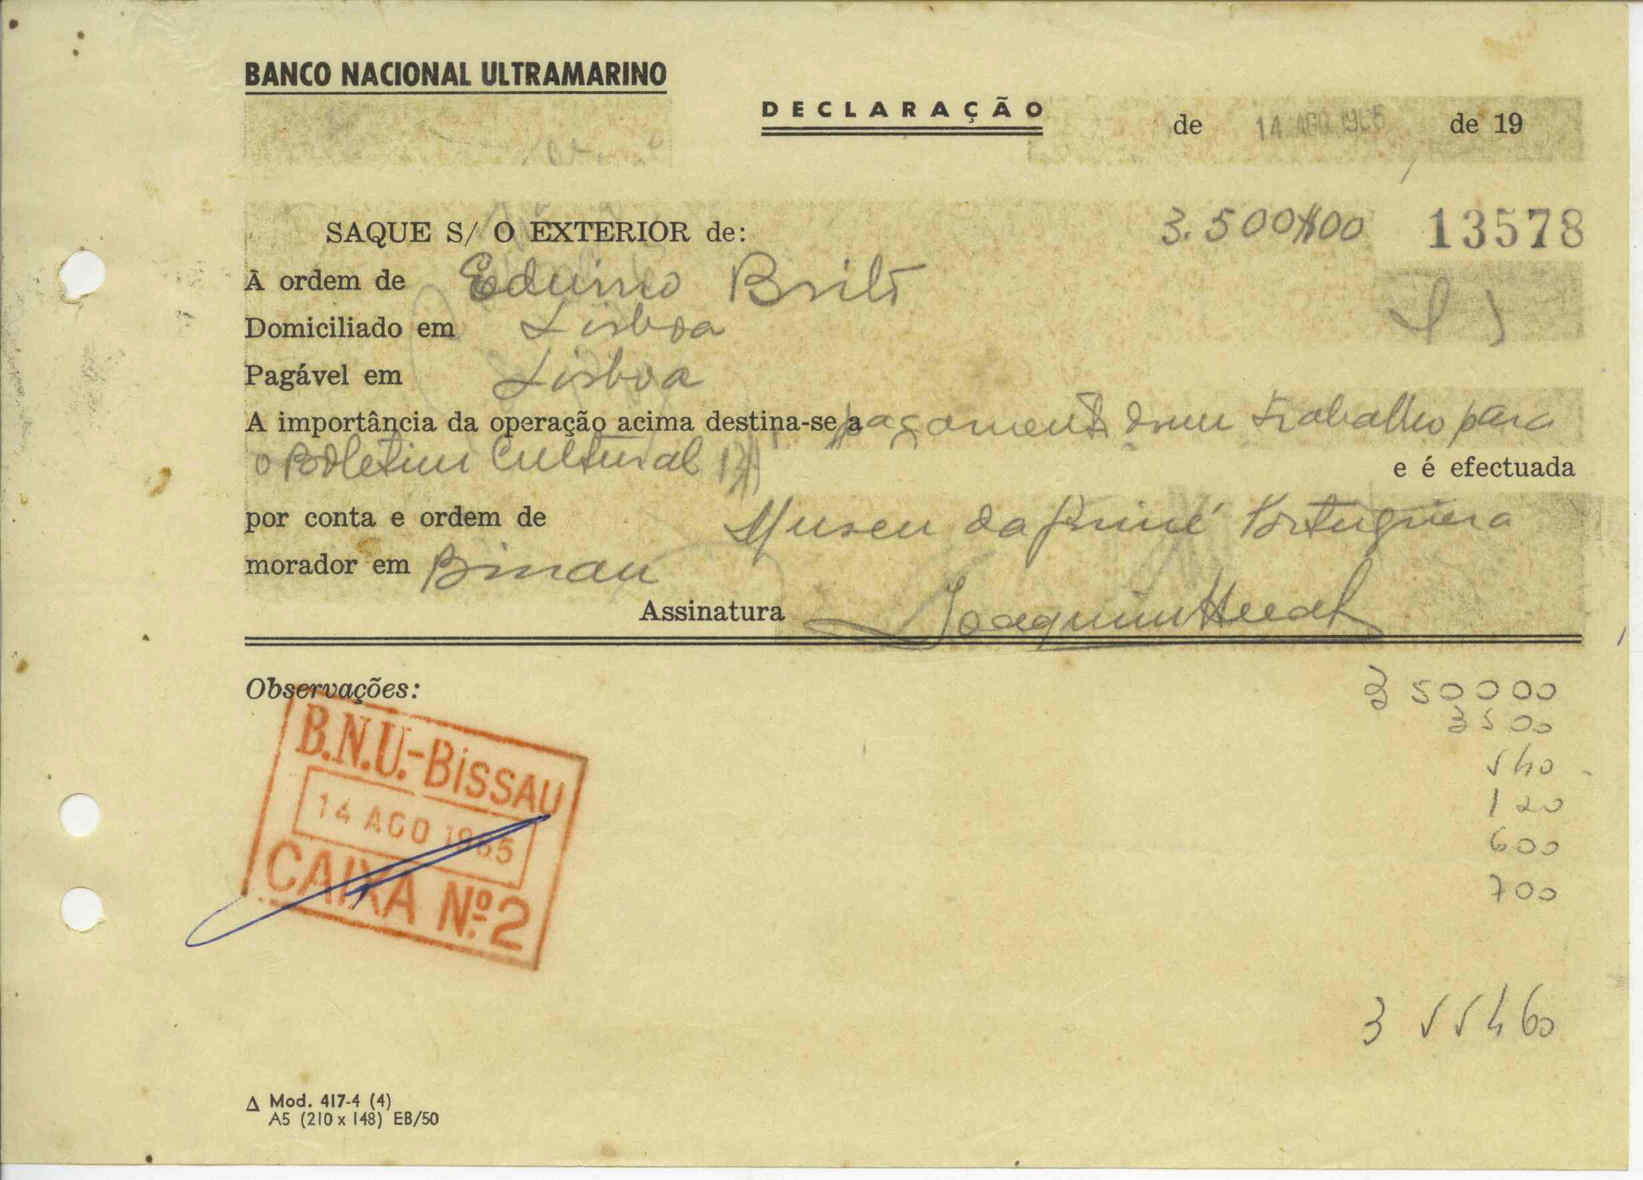 BANCO NACIONAL ULTRAMARINO
DECLARAÇÃO
de 14 AGO 1965 de 19
SAQUE S/ O EXTERIOR de: 3.500$00 13578
À ordem de Eduino Brito
Domiciliado em Lisboa
Pagável em Lisboa
A importância da operação acima destina-se a pagamento dum trabalho para
o Boletim Cultural e é efectuada
por conta e ordem de Museu da Guiné Portuguesa
morador em Bissau
Assinatura Joaquim
Observações:
3 500 00
35 00
5 40
1 20
6 00
7 00
3 554 60
B.N.U.-BISSAU
14 AGO 1965
CAIXA Nº 2
Δ Mod. 417-4 (4)
A5 (210 x 148) EB/50